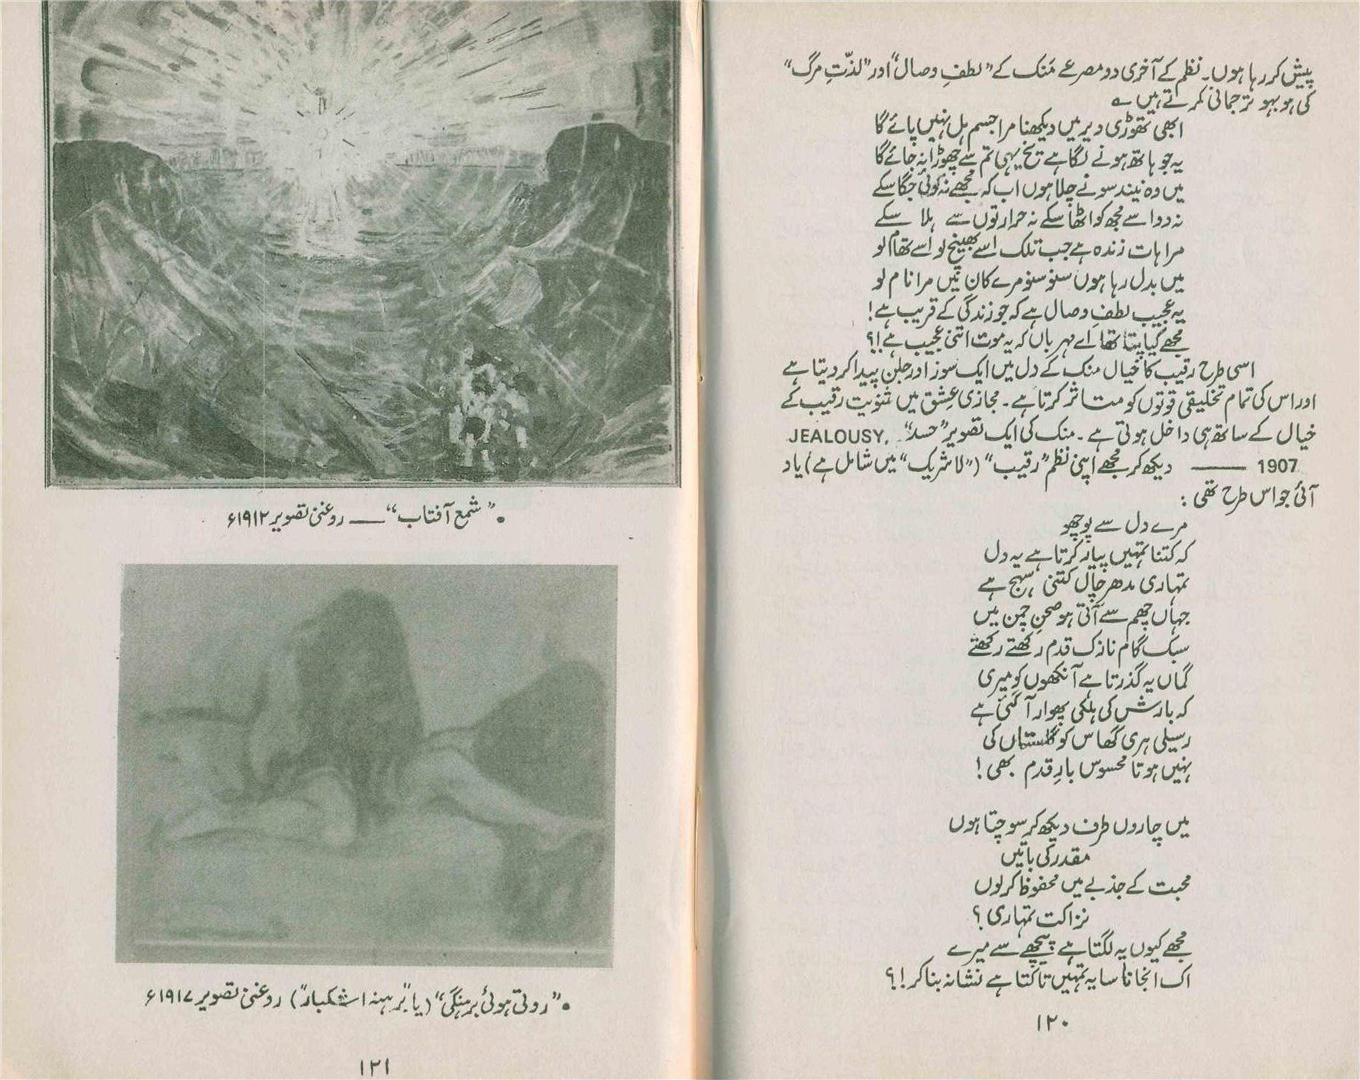 پیش کر رہا ہوں۔ نظم کے آخری دو مصرعے مَنک کے "لطفِ وصال" اور "لذّتِ مرگ"
کی ہو بہو ترجمانی کرتے ہیں ؎
ابھی تھوڑی دیر میں دیکھنا مرا جسم ہل نہیں پائے گا
یہ جو ہاتھ ہونے لگا ہے یخ یہی تم سے چھوڑا نہ جائے گا
میں وہ نیند سونے چلا ہوں اب کہ مجھے نہ کوئی جگا سکے
نہ دوا سے مجھ کو اٹھا سکے نہ حرارتوں سے ہلا سکے
مرا ہات زندہ ہے جب تلک اسے بھینچ لو اسے تھام لو
میں بدل رہا ہوں سنو سنو مرے کان میں مرا نام لو
یہ عجیب لطفِ وصال ہے کہ جو زندگی کے قریب ہے!
مجھے کیا پتا تھا اے مہرباں کہ یہ موت اتنی عجیب ہے!؟
اسی طرح رقیب کا خیال منک کے دل میں ایک سوز اور جلن پیدا کر دیتا ہے
اور اس کی تمام تخلیقی قوتوں کو متاثر کرتا ہے۔ مجازی عشق میں ثنویت رقیب کے
خیال کے ساتھ ہی داخل ہوتی ہے۔ منک کی ایک تصویر "حسد" JEALOUSY,
1907 —— دیکھ کر مجھے اپنی نظم "رقیب" ("لاشریک" میں شامل ہے) یاد
آئی جو اس طرح تھی :
مرے دل سے پوچھو
کہ کتنا تمہیں پیار کرتا ہے یہ دل
تمہاری مدھر چال کتنی سہج ہے
جہاں چھم سے آتی ہو صحنِ چمن میں
سبک گام نازک قدم رکھتے رکھتے
گماں یہ گذرتا ہے آنکھوں کو میری
کہ بارش کی ہلکی پھوار آ گئی ہے
رسیلی ہری گھاس کو گلستاں کی
نہیں ہوتا محسوس بارِ قدم بھی !
میں چاروں طرف دیکھ کر سوچتا ہوں
مقدر کی باتیں
محبت کے جذبے میں محفوظ کر لوں
نزاکت تمہاری ؟
مجھے کیوں یہ لگتا ہے پیچھے سے میرے
اک انجانا سایہ تمہیں تاکتا ہے نشانہ بنا کر !؟
۱۲۰
• "شمع آفتاب" —— روغنی تصویر ۱۹۱۲ء
• "روتی ہوئی برہنگی" (یا "برہنہ اشکبار") روغنی تصویر ۱۹۱۷ء
۱۲۱